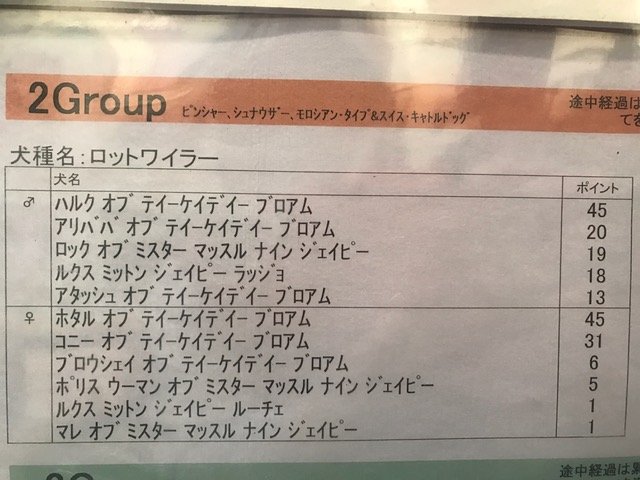 2Group ピンシャー、シュナウザー、モロシアン・タイプ&スイス・キャトルドッグ 途中経過は
てを
犬種名:ロットワイラー
犬名 ポイント
♂ ハルク オブ テイーケイデイー ブロアム 45
アリババ オブ テイーケイデイー ブロアム 20
ロック オブ ミスター マッスル ナイン ジェイピー 19
ルクス ミットン ジェイピー ラッジョ 18
アタッシュ オブ テイーケイデイー ブロアム 13
♀ ホタル オブ テイーケイデイー ブロアム 45
コニー オブ テイーケイデイー ブロアム 31
ブロウシェイ オブ テイーケイデイー ブロアム 6
ポリス ウーマン オブ ミスター マッスル ナイン ジェイピー 5
ルクス ミットン ジェイピー ルーチェ 1
マレ オブ ミスター マッスル ナイン ジェイピー 1
途中経過は累